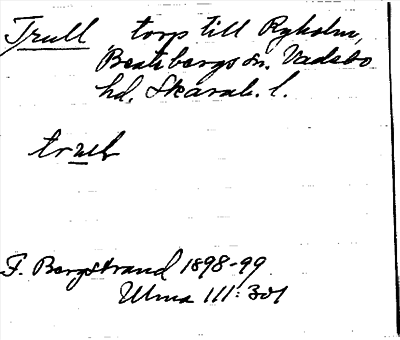 Trull torp till Ryholm,
Beatebergs sn. Vadsbo
hd. Skarab. l.
trull
F. Bergstrand 1898-99
Ulma 111:301